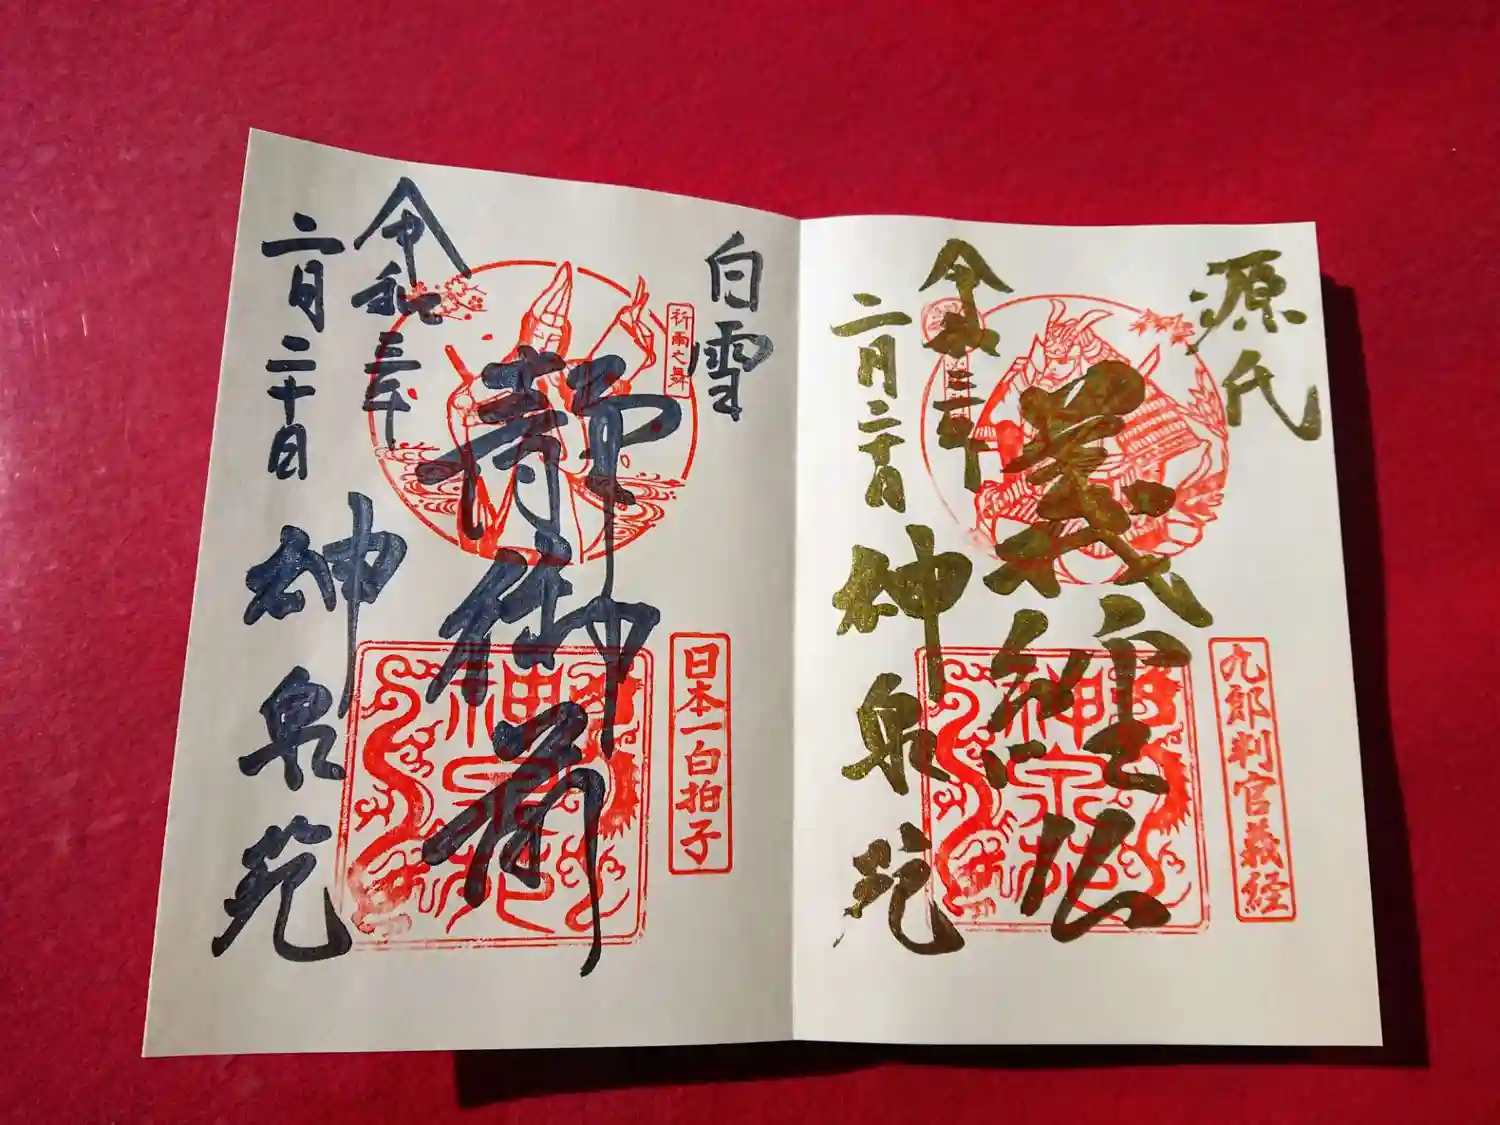 源氏
九郎判官義経
義経公
神泉苑
令和三年
二月二十日
神泉苑
白雪
祈雨之舞
日本一白拍子
静御前
神泉苑
令和三年
二月二十日
神泉苑